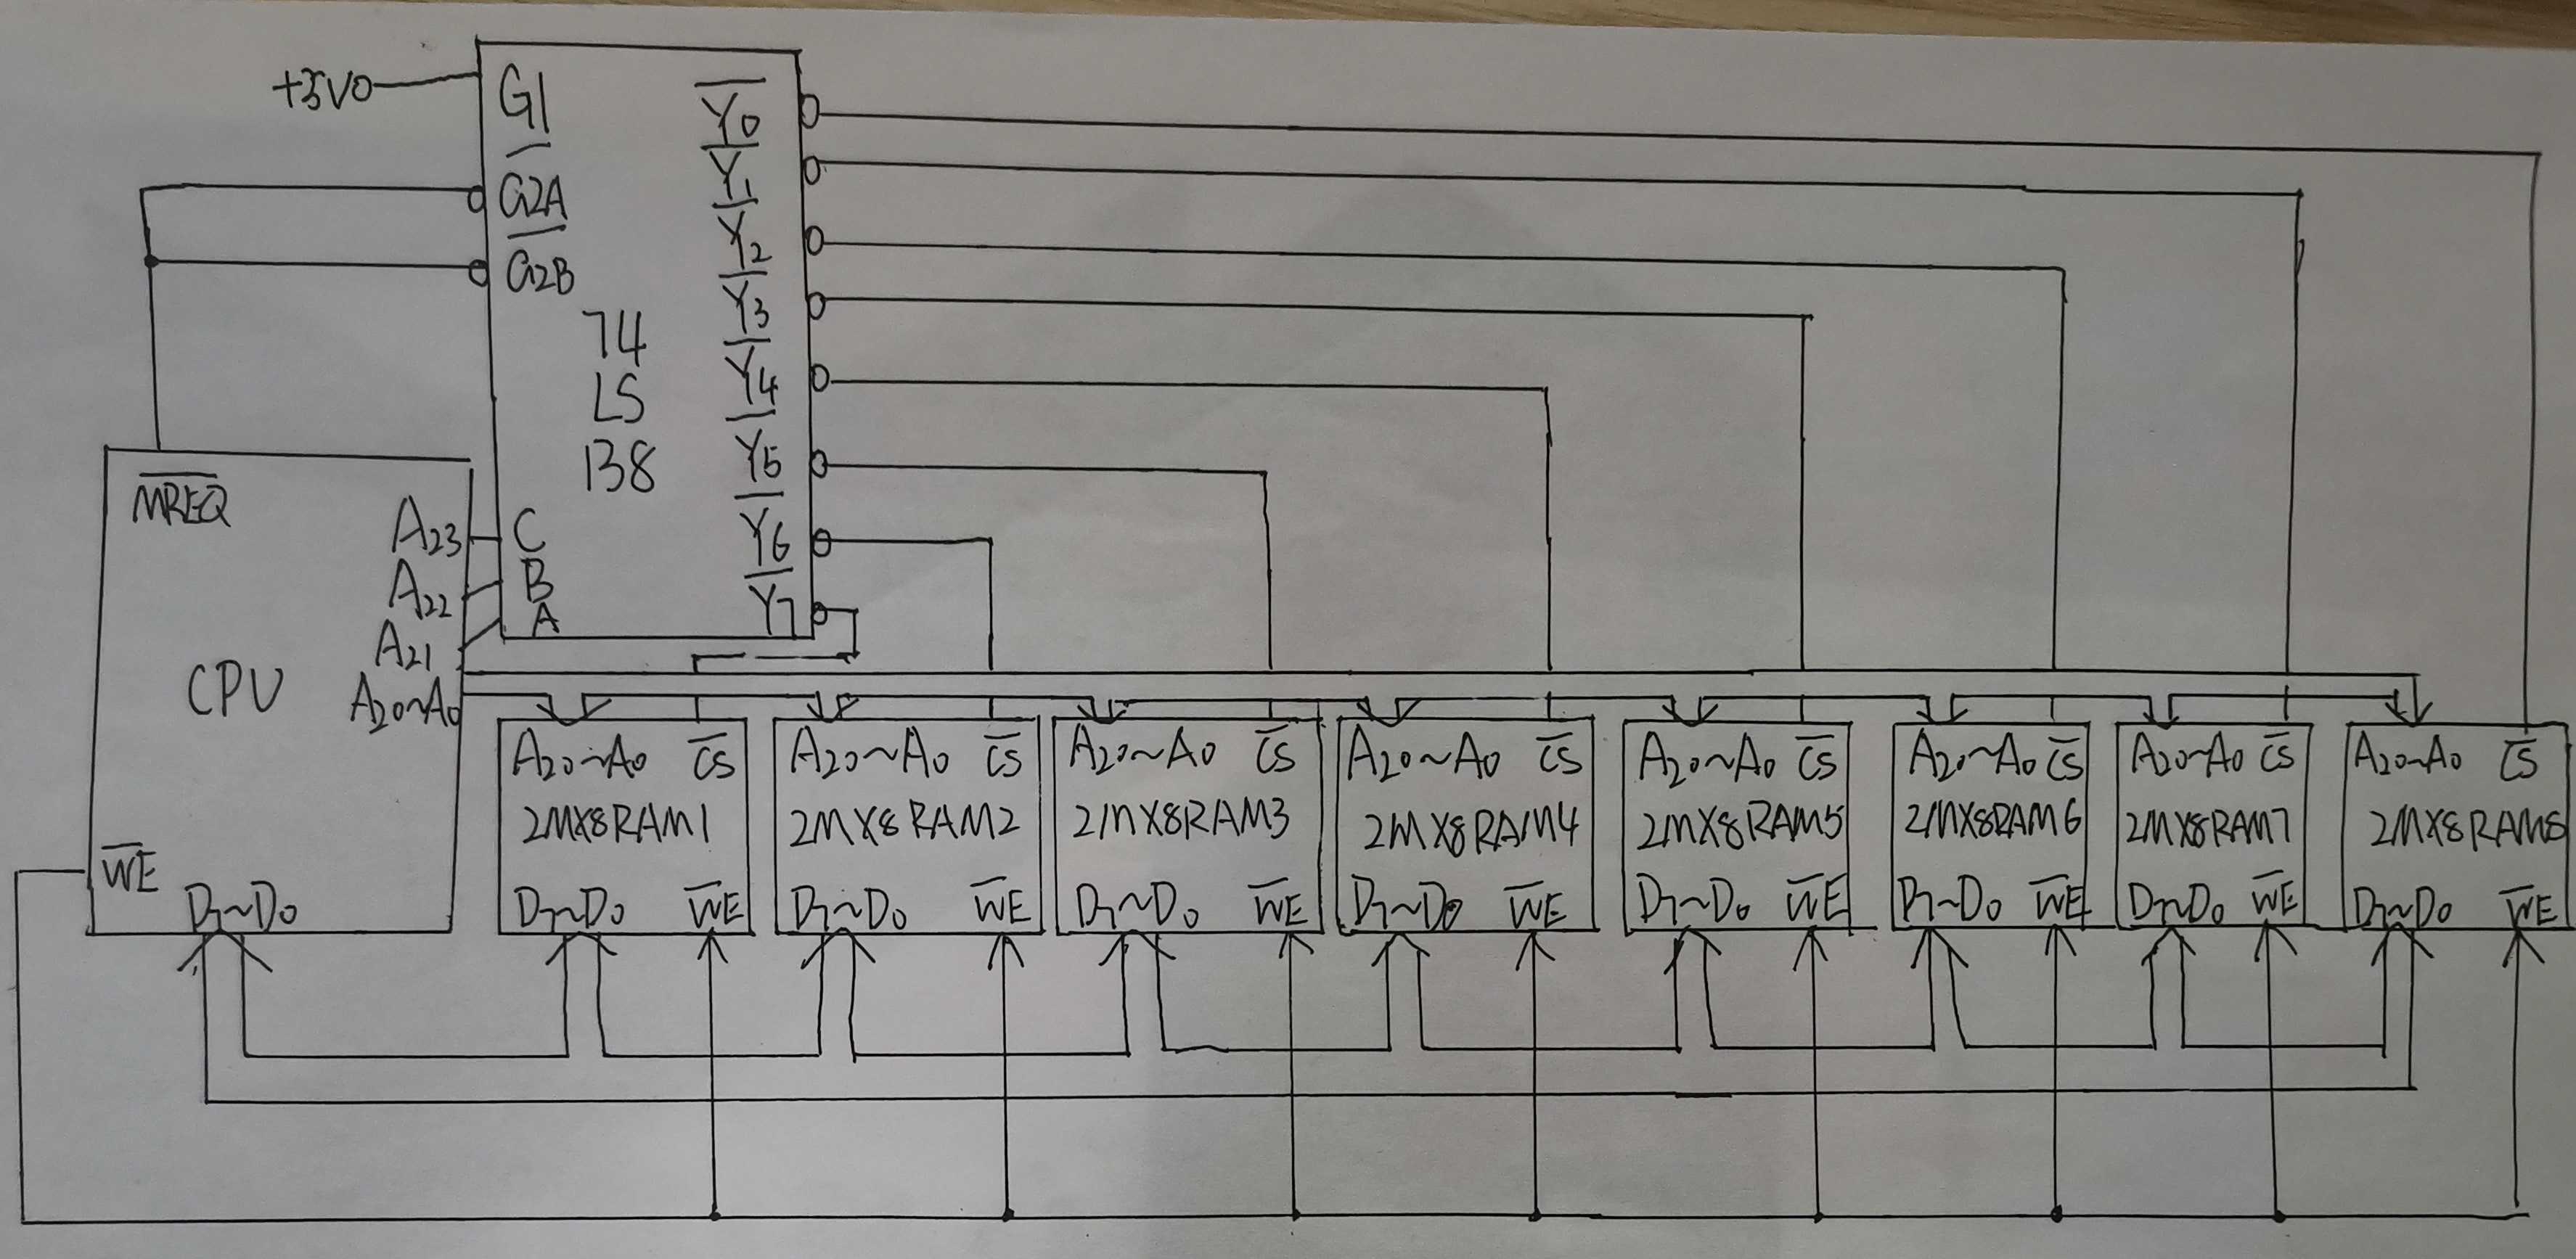 +5V
G1
G2A
G2B
74
LS
138
C
B
A
Y0
Y1
Y2
Y3
Y4
Y5
Y6
Y7
MREQ
A23
A22
A21
A20~A0
CPU
WE
D7~D0
A20~A0 CS
2MX8RAM1
D7~D0 WE
A20~A0 CS
2MX8RAM2
D7~D0 WE
A20~A0 CS
2MX8RAM3
D7~D0 WE
A20~A0 CS
2MX8RAM4
D7~D0 WE
A20~A0 CS
2MX8RAM5
D7~D0 WE
A20~A0 CS
2MX8RAM6
D7~D0 WE
A20~A0 CS
2MX8RAM7
D7~D0 WE
A20~A0 CS
2MX8RAM8
D7~D0 WE